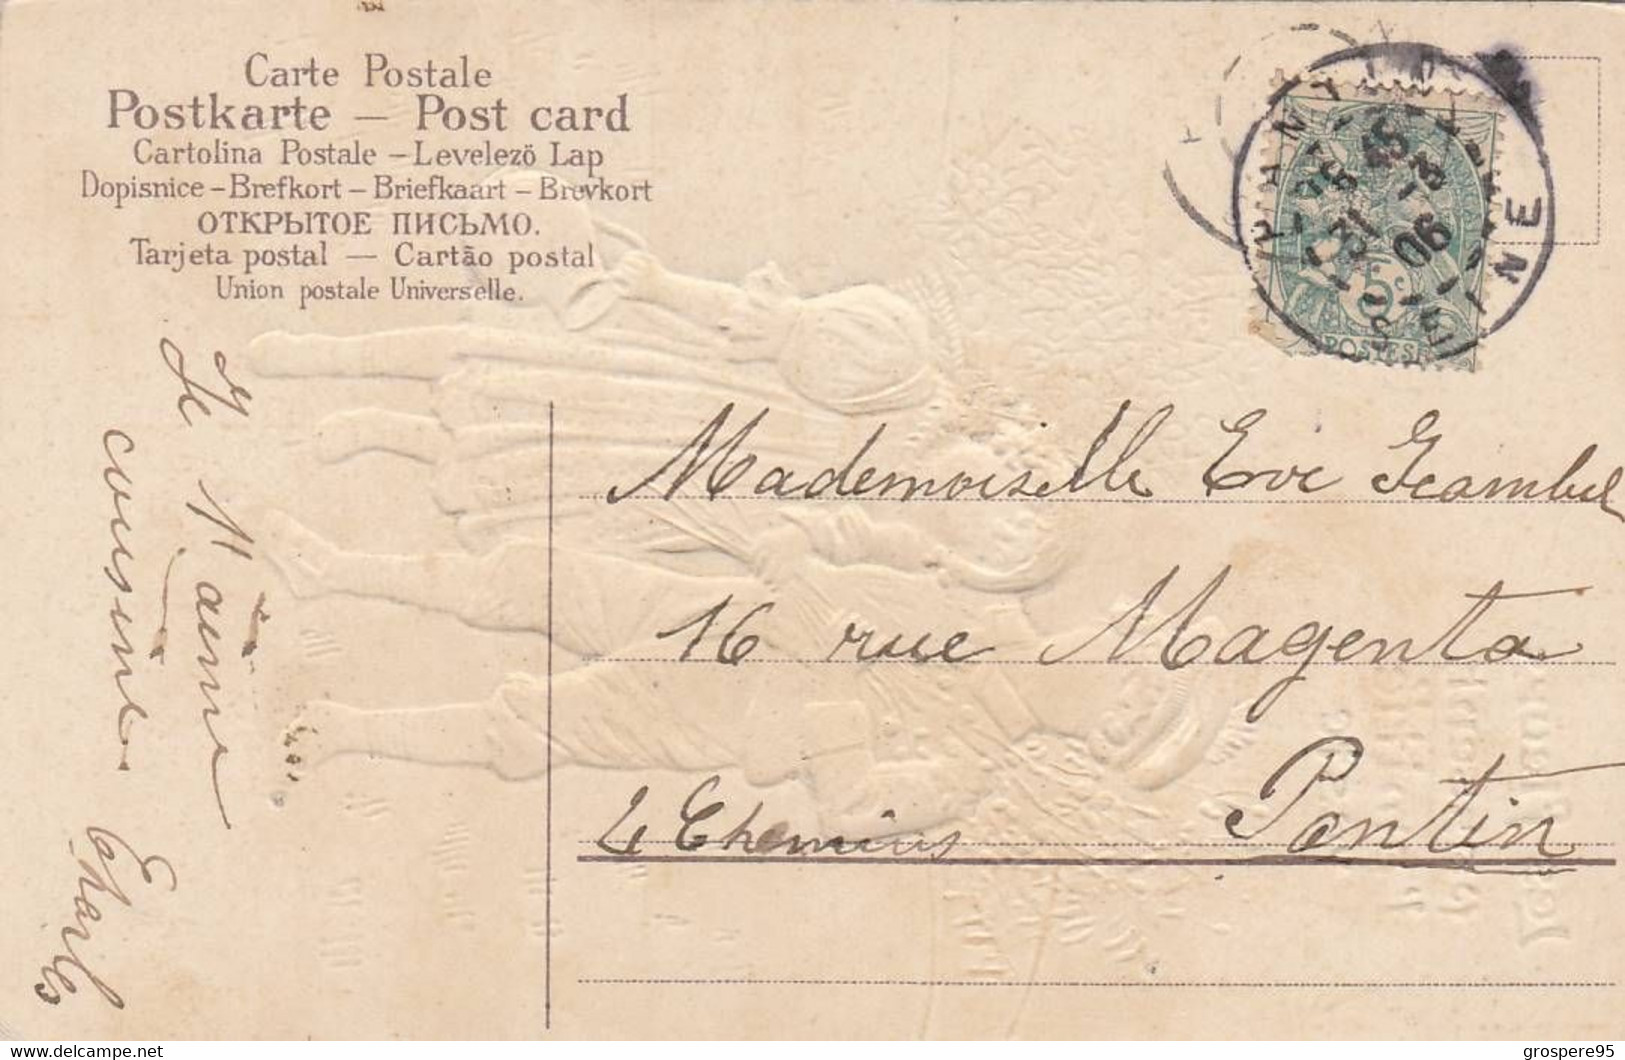 Carte Postale
Postkarte – Post card
Cartolina Postale – Levelezö Lap
Dopisnice – Brefkort – Briefkaart – Brevkort
ОТКРЫТОЕ ПИСЬМО.
Tarjeta postal — Cartão postal
Union postale Universelle.
Je
aime
cousine
Charles
5c
POSTES
31 -3
06
SEINE
Mademoiselle Eve
16 rue Magenta
4 Chemins Pantin
delcampe.net
grospere95